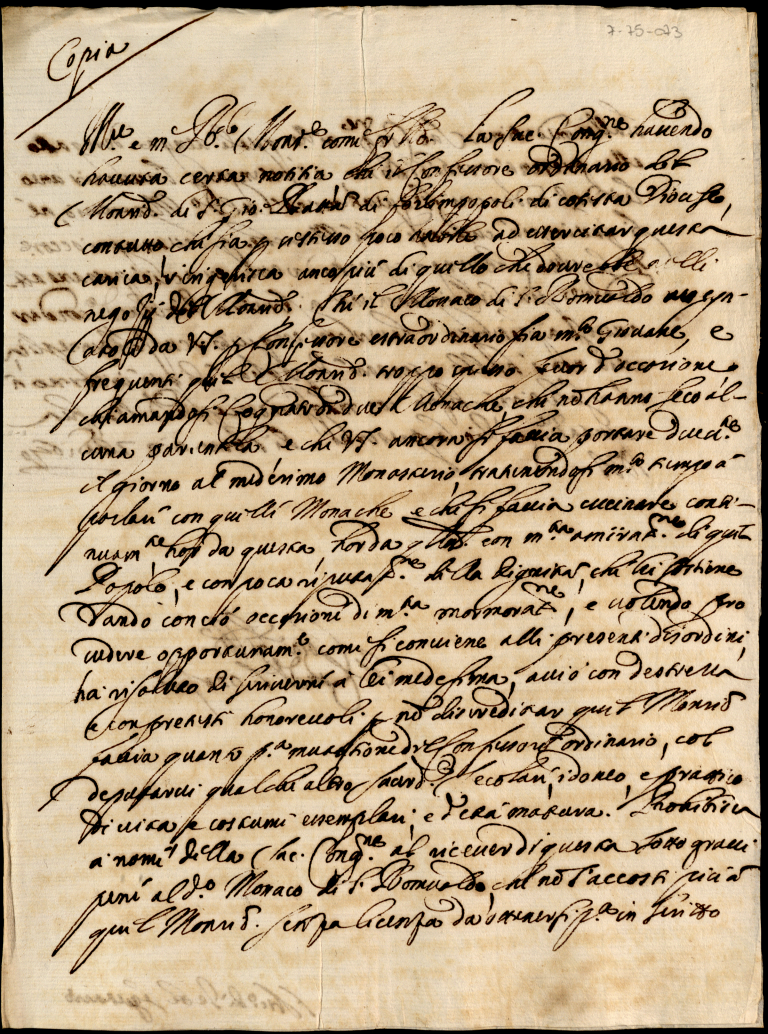 7-75-073
Copia
Ill.re e m. R.do Mons.re come fr.llo. La Sac. Cong.ne havendo
havuta certa notitia che il Confessore ordinario del
Monrio. di S. Gio. Batta di forlimpopoli di cotesta Diocesi,
che sia poco habile ad essercitar questa
carica, ringerisca anco più di quello che dovrebbe nelli
negotij del Monrio. Che il Monaco di S. Romualdo assegn-
ato da V.S. p Confessore estraordinario sia m.to Giovane, e
frequenti quel Monrio. troppo spesso fuor d'occasione
chiamandosi Cognato di due Monache, che nõ hanno seco al-
cuna parentela e che V.S. ancora si faccia portare due
il giorno al medesimo Monasterio, trattenendosi m.to tempo à
parlar con quelle Monache e che si faccia cucinare conti-
nuam.te hor da questa, hor da q.lla con m.ta amirat.ne di quel
Popolo, e con poca riputat.ne della dignità, che lei sostiene
dando con ciò occasione di m.ta mormorat.ne, e volendo pro
vedere opportunam.te come si conviene alli presenti disordini,
ha risoluto di scriverne à lei medesima, acciò con destrezza
e con pretesti honorevoli p nõ discreditar quel Monrio
faccia quanto p.a mutatione del Confessore ordinario, col
deputarvi qualche altro Sacerd. Secolare, idoneo, e prattico
di vita e costumi essemplari, e d'età matura. Prohibisca
a nome della Sac. Cong.ne al ricever di questa sotto gravi
pene al d.o Monaco di S. Romualdo, che nõ s'accosti più à
quel Monrio. senza licenza da ottenersi p.a in scritto